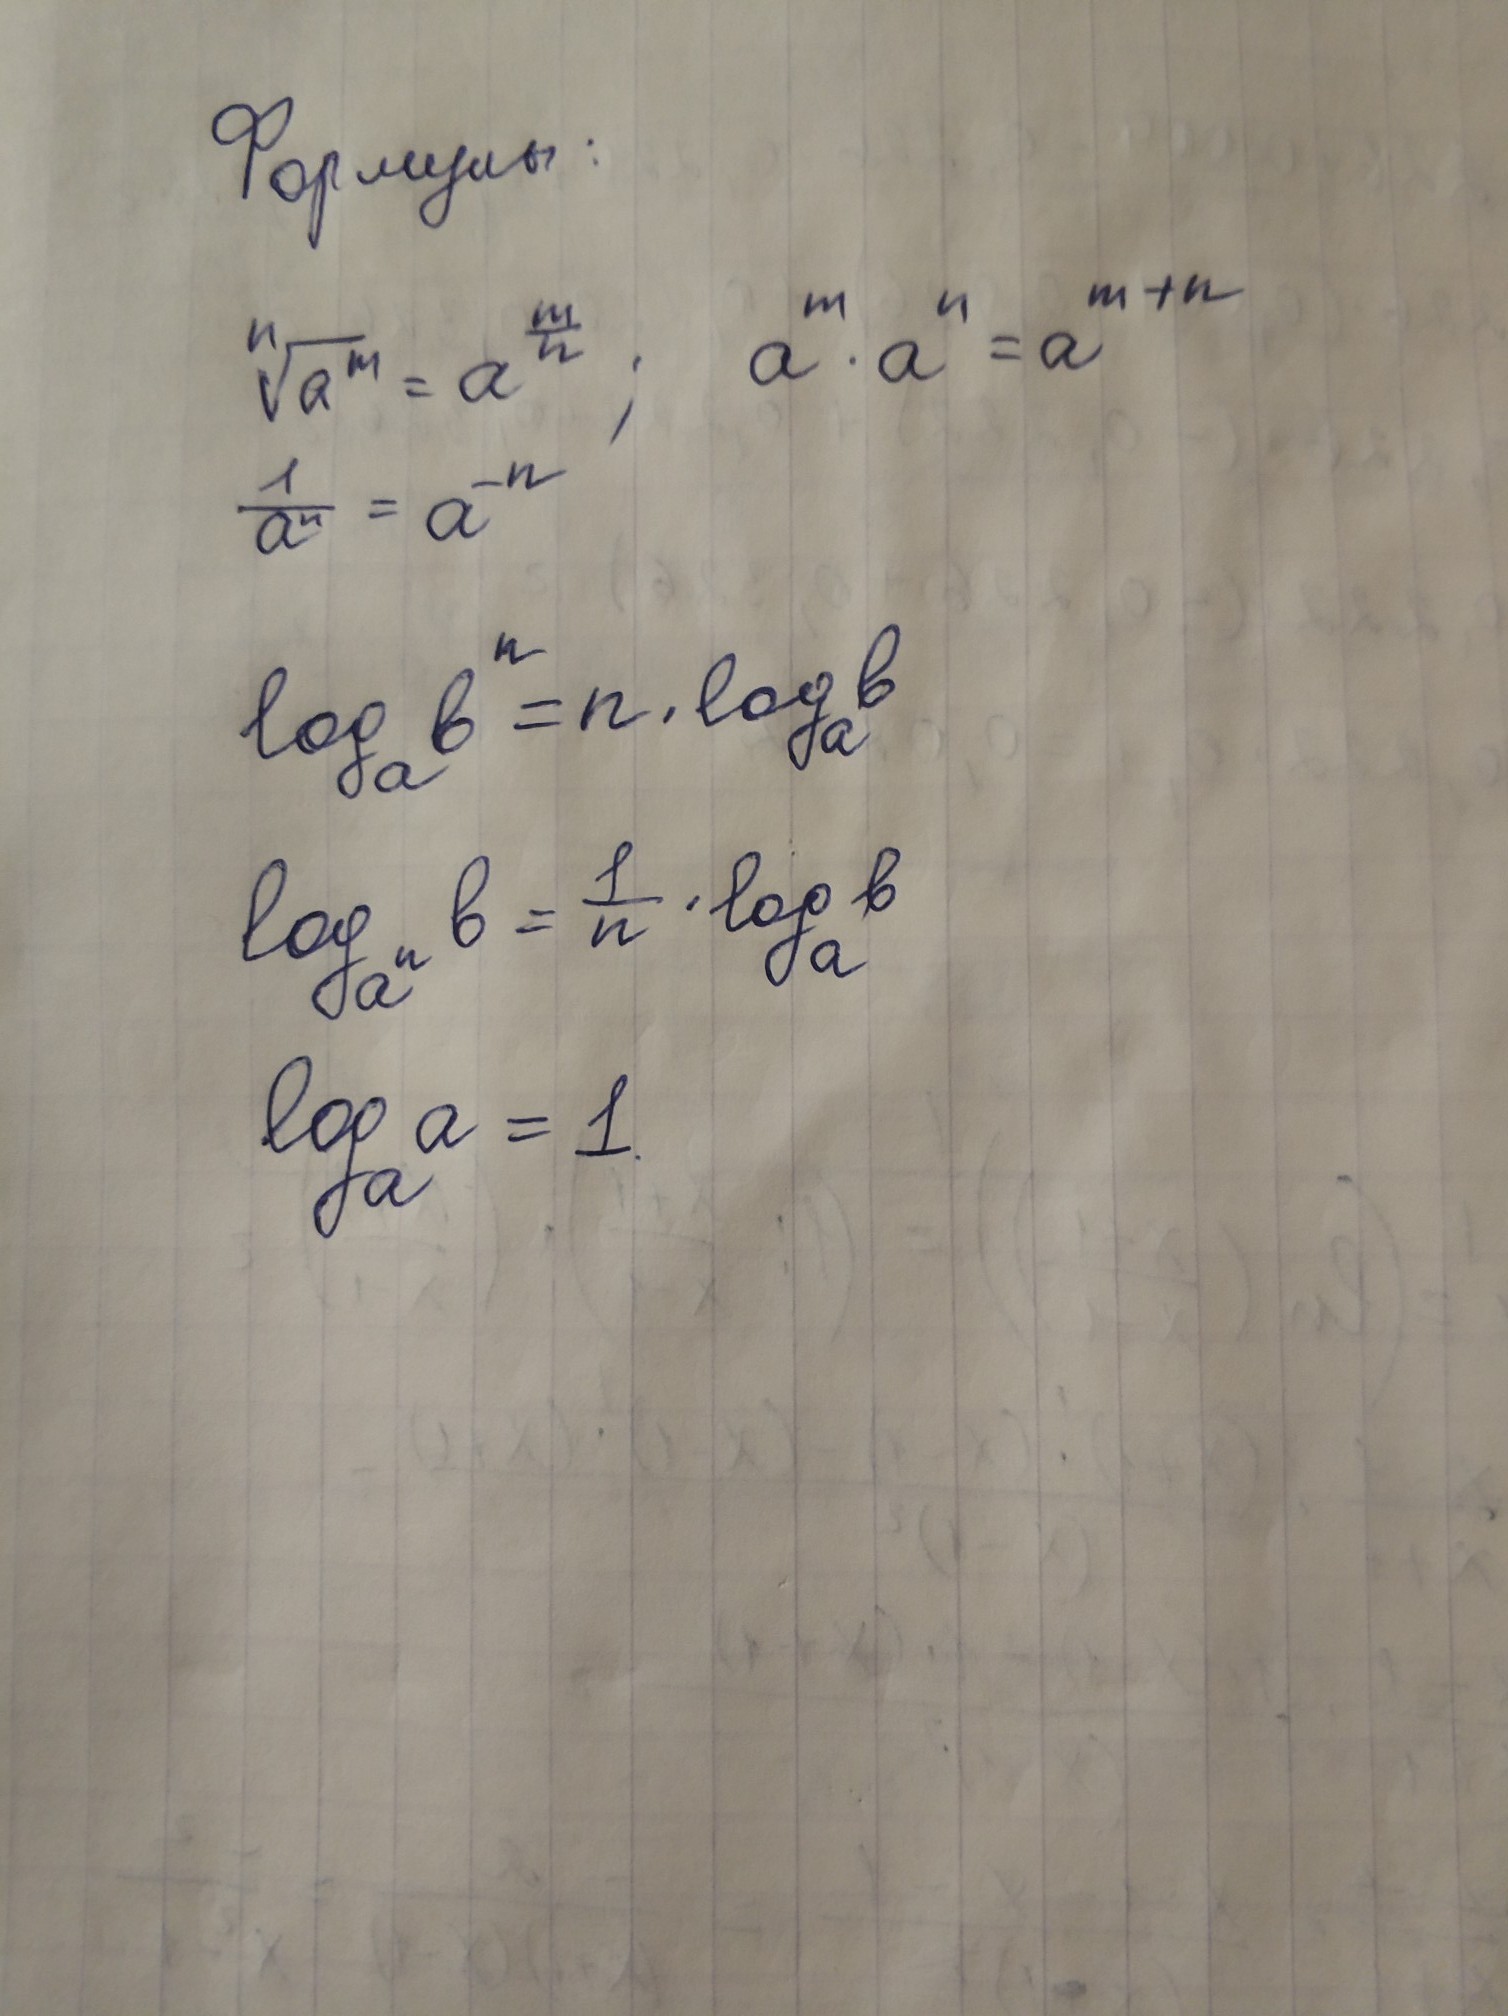 Формулы:
ⁿ√aᵐ = a^(m/n) ; aᵐ · aⁿ = a^(m+n)
1/aⁿ = a⁻ⁿ
logₐ bⁿ = n · logₐ b
log_(aⁿ) b = 1/n · logₐ b
logₐ a = 1.